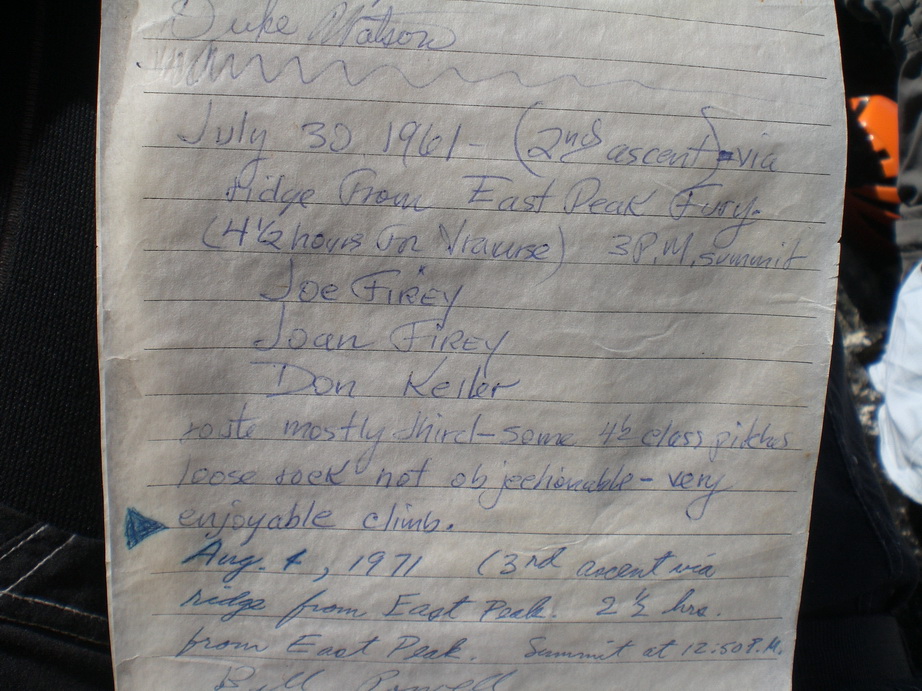 Duke Watson
July 30 1961 - (2nd ascent) - via
ridge from East Peak Fury.
(4½ hours for Traverse) 3 P.M. summit
Joe FIREY
Joan FIREY
Don Keller
route mostly third - some 4½ class pitches
loose rock not objectionable - very
enjoyable climb.
Aug. 4, 1971 (3rd ascent via
ridge from East Peak. 2½ hrs.
from East Peak. Summit at 12:50 P.M.
Bill